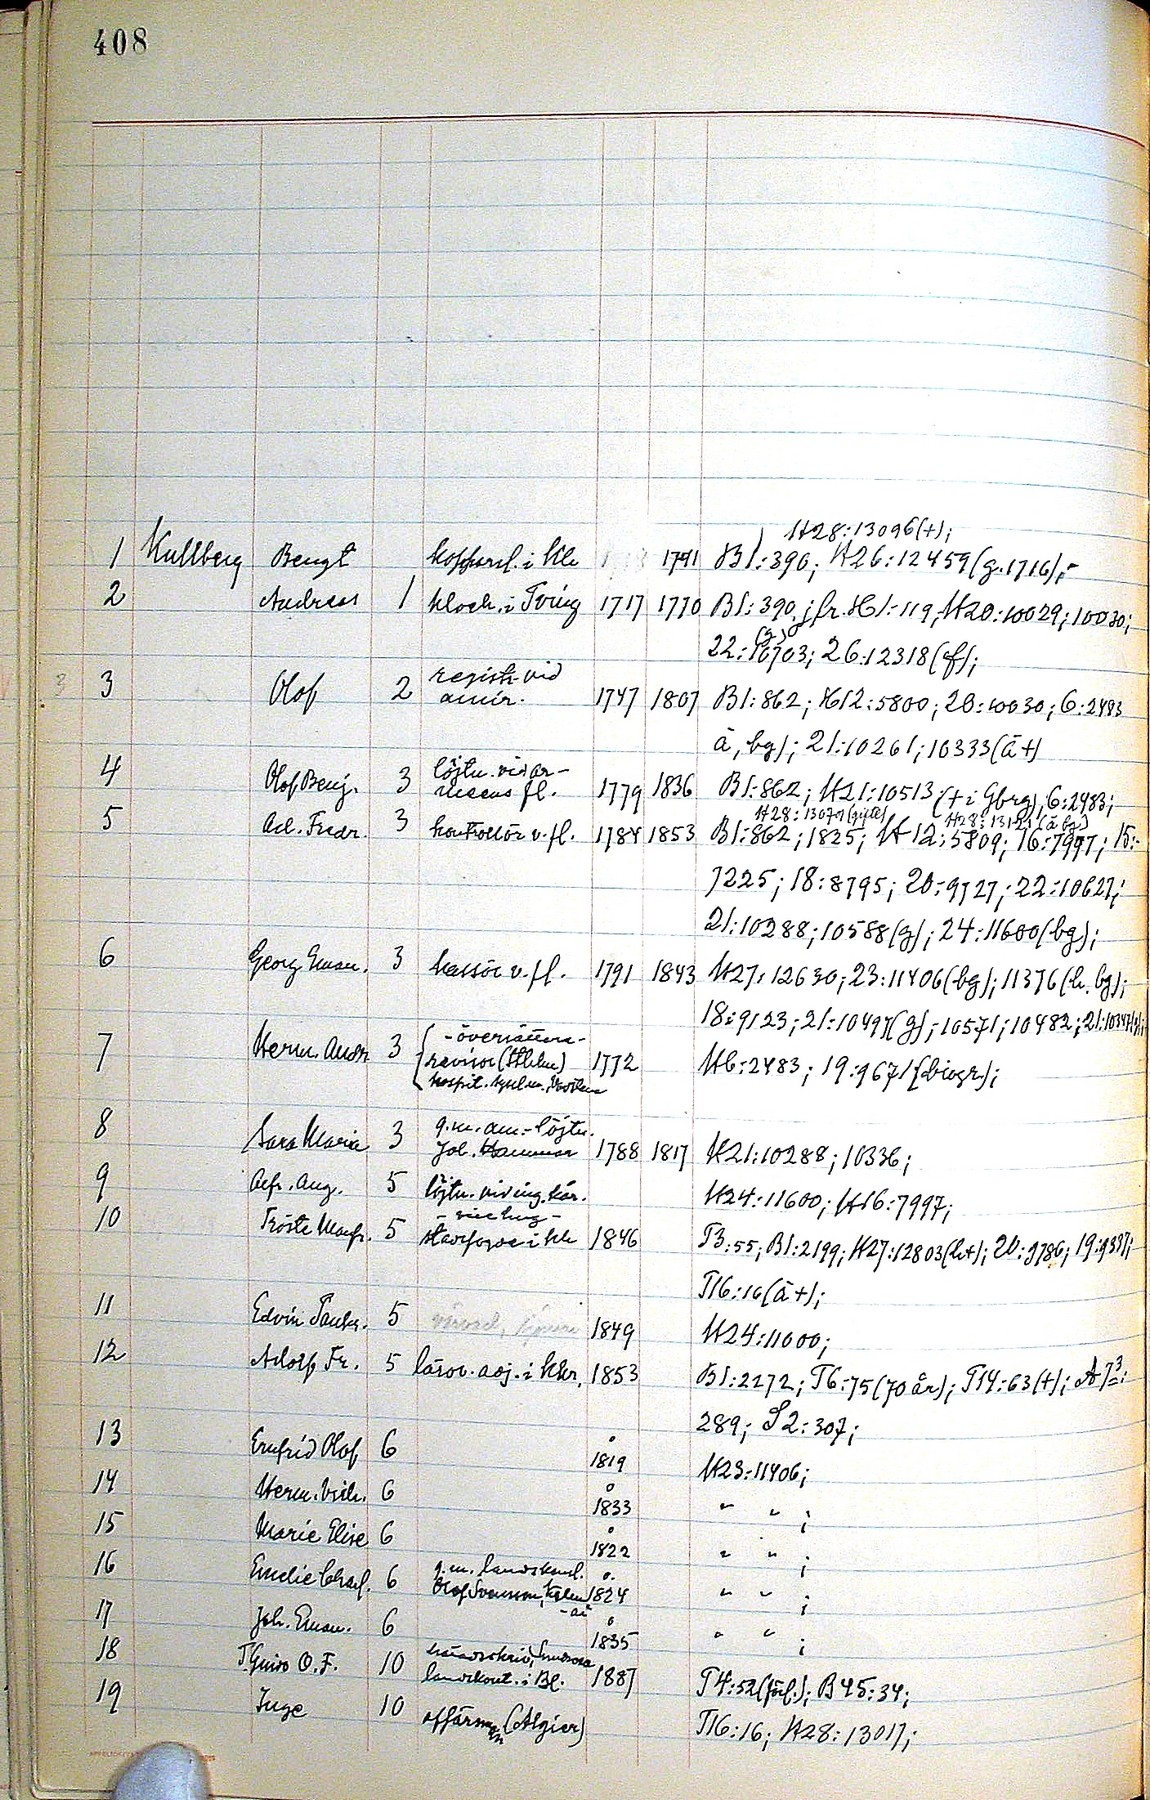 408
H28:13096(+);
1 Kullberg Bengt kopparsl. i Kla 1791 B1:390; H26:12459(g.1716);-
2 Andreas 1 klock. i Tving 1717 1770 B1:390, jfr. H1:119, H20:10029; 10030;
(g)
22:10703; 26:12318(f);
3 registr. vid
3 Olof 2 amir. 1747 1807 B1:862; H12:5800; 20:10030; 6:2483
ä, bg); 21:10261; 10333(ä+)
4 Olof Benj. 3 löjtn. vid ar-
méens fl. 1779 1836 B1:862; H21:10513 (+ i Gbrg); 6:2483;
H28:13070(gifte) H28:13121(ä bg)
5 Ad. Fredr. 3 kontrollör v. fl. 1784 1853 B1:862; 1825; H12:5809; 16:7997; 15:-
7225; 18:8795; 20:9727; 22:10627;
21:10288; 10588(g); 24:11600(bg);
6 Georg Eman. 3 kassör v. fl. 1791 1843 H27:12630; 23:11406(bg); 11376(h. bg);
18:9123; 21:10497(g); 10571; 10482;
7 Herm. Andr. 3 revisor 1772 H6:2483; 19:9671(biogr);
8 Sara Maria 3 g.m. am.-löjtn.
Joh. Hammar 1788 1817 H21:10288; 10336;
9 Aug. 5 löjtn. vid ing. kår. H24:11600; H16:7997;
10 5 i Kla 1846 T3:55; B1:2199; H27:12803(h+); 20:9786; 19:9337;
T16:16(ä+);
11 Edvin 5 1849 H24:11600;
12 Adolf Fr. 5 lärov. adj. i Kkr. 1853 B1:2272; T6:75(70 år); T14:63(+); A73:
289; S2:307;
13 Emfrid Olof 6 1819 H23:11406;
14 Herm. Vilh. 6 1833 " " ;
15 Marie Elise 6 1822 " " ;
16 Emelie Charl. 6 g.m. landskansl.
Olof Svensson, Kalm-
ar 1824 " " ;
17 Joh. Eman. 6 1835 " " ;
18 T. Guido O.F. 10 häradsskriv.
landskont. i Bl. 1887 T4:52(förl.); B45:34;
19 Inge 10 affärsm. (Algier) T16:16; H28:13017;